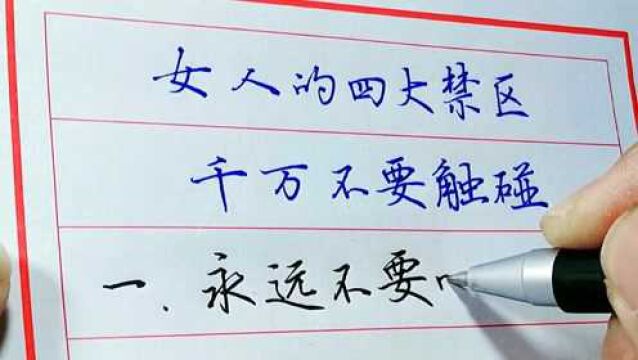 女人的四大禁区
千万不要触碰
一、永远不要